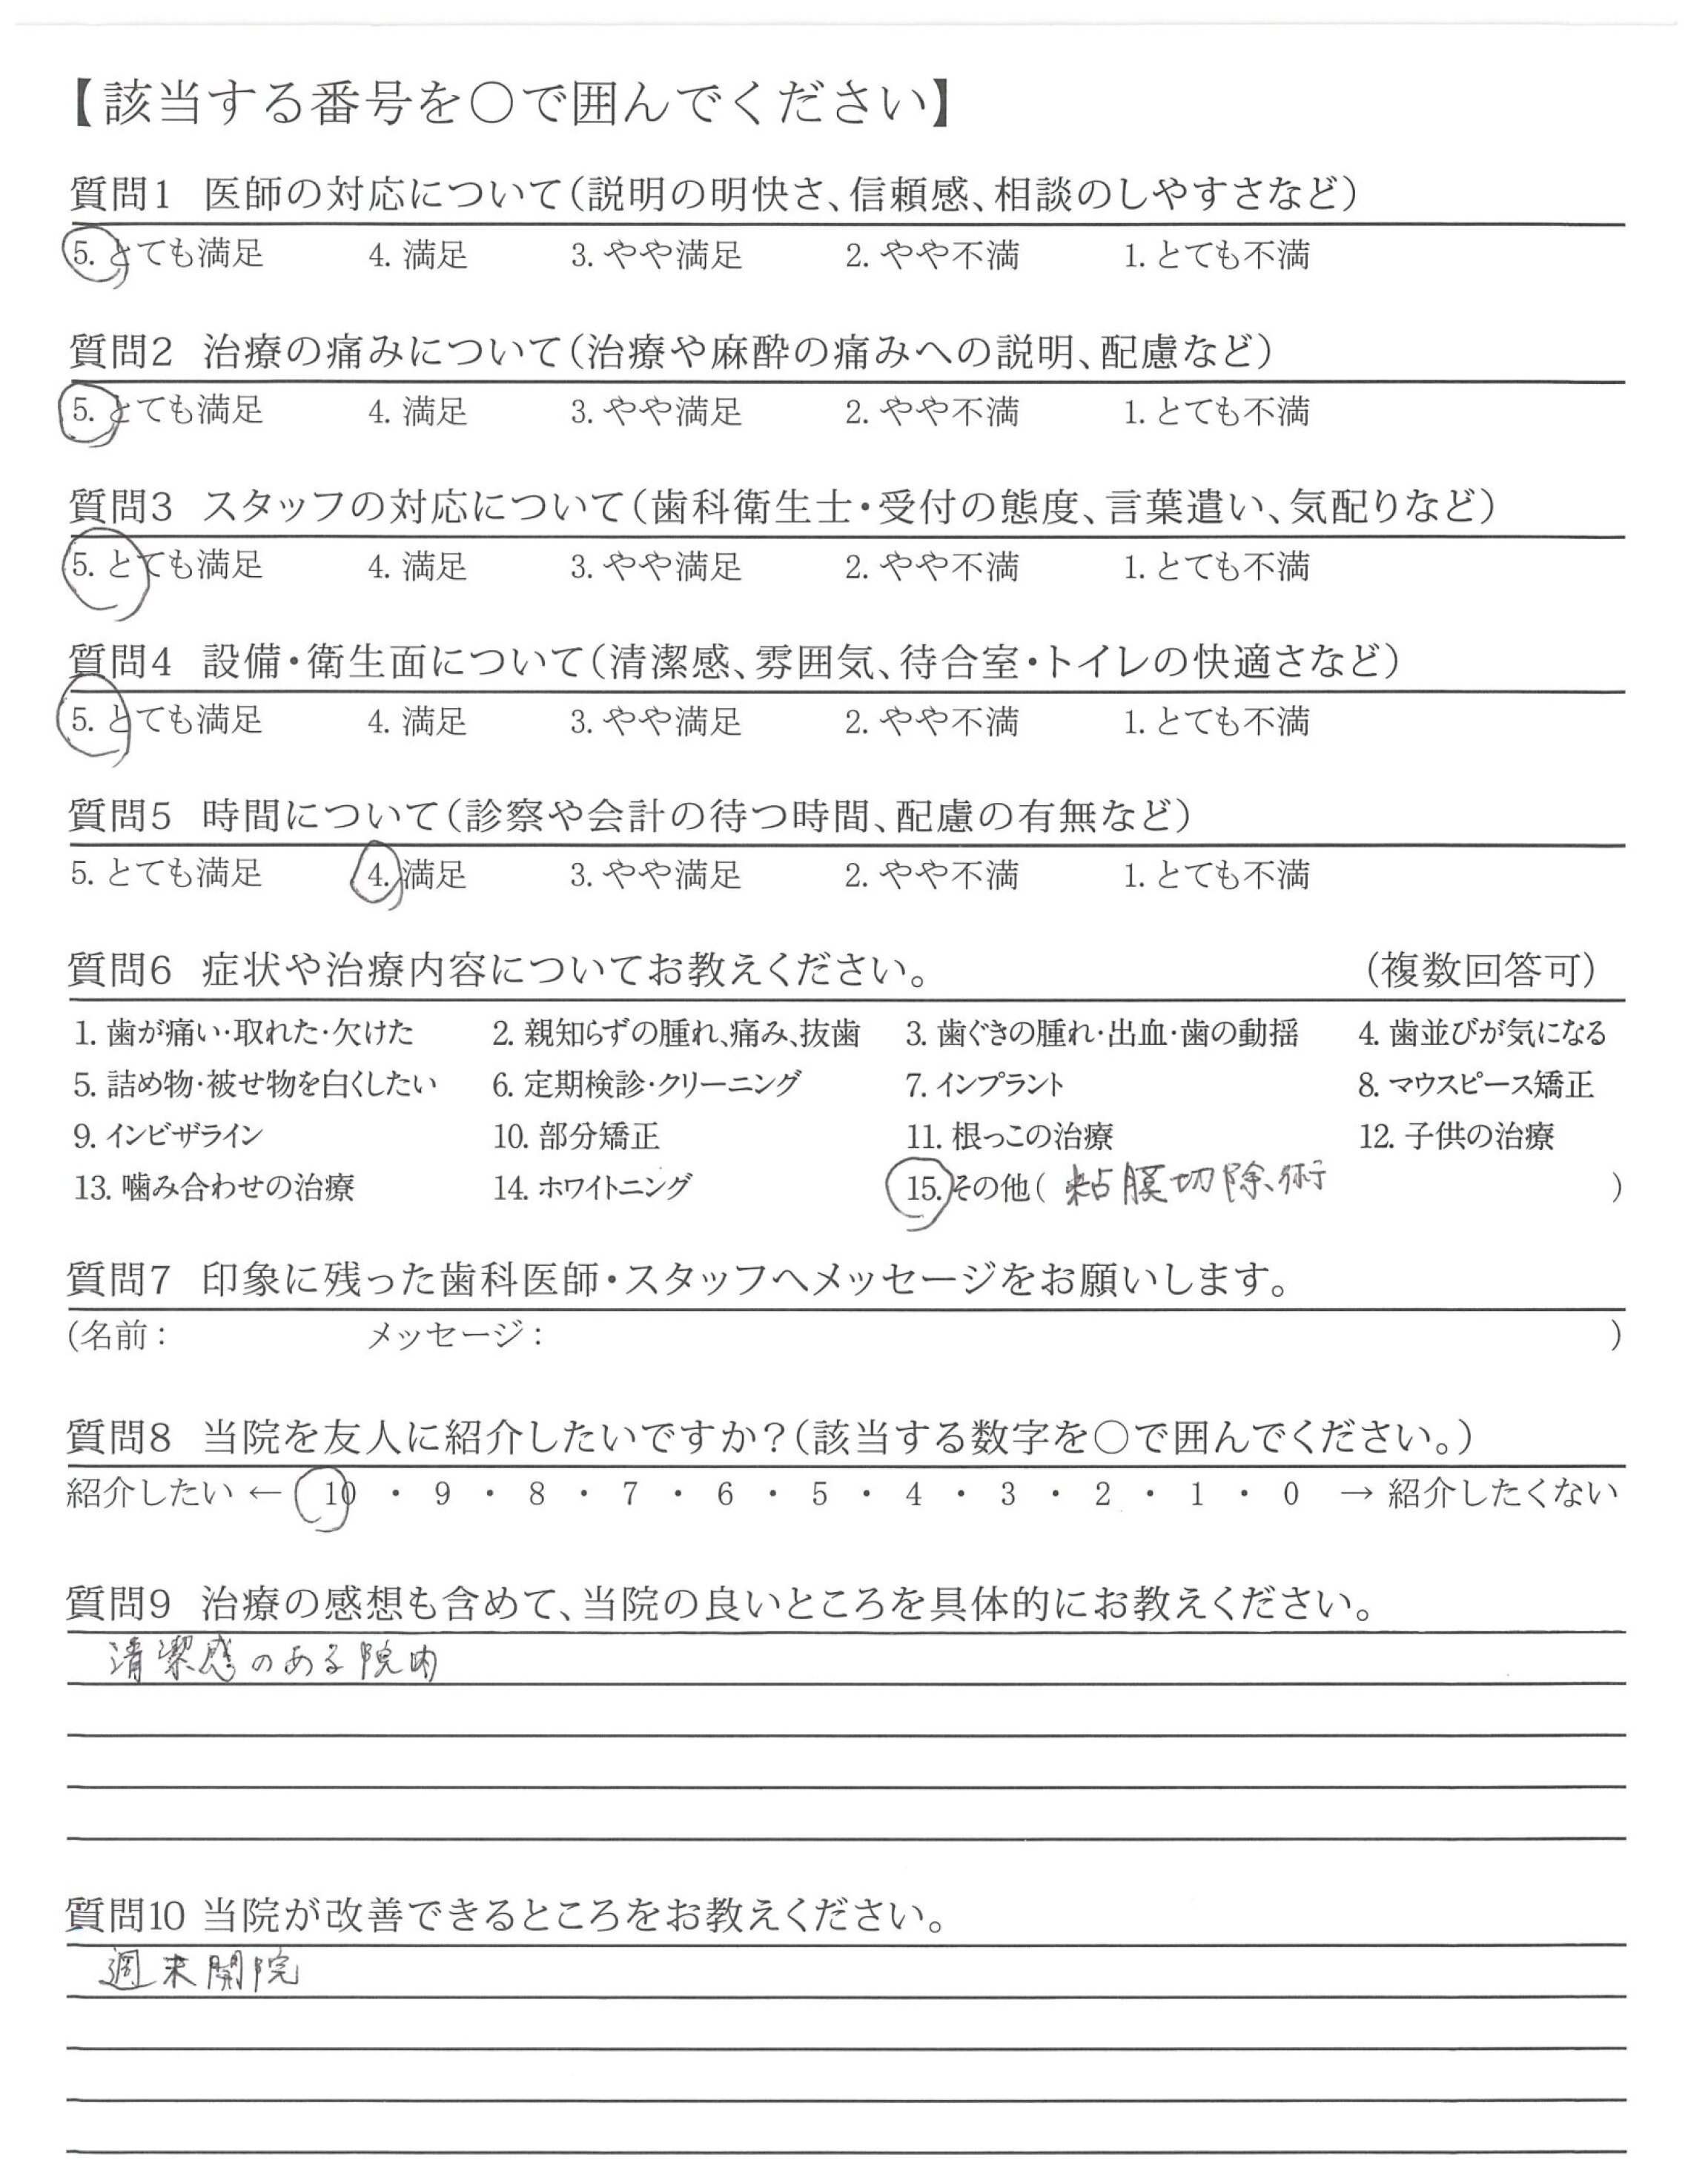 【該当する番号を〇で囲んでください】
質問1 医師の対応について（説明の明快さ、信頼感、相談のしやすさなど）
5. とても満足 4. 満足 3. やや満足 2. やや不満 1. とても不満
質問2 治療の痛みについて（治療や麻酔の痛みへの説明、配慮など）
5. とても満足 4. 満足 3. やや満足 2. やや不満 1. とても不満
質問3 スタッフの対応について（歯科衛生士・受付の態度、言葉遣い、気配りなど）
5. とても満足 4. 満足 3. やや満足 2. やや不満 1. とても不満
質問4 設備・衛生面について（清潔感、雰囲気、待合室・トイレの快適さなど）
5. とても満足 4. 満足 3. やや満足 2. やや不満 1. とても不満
質問5 時間について（診察や会計の待つ時間、配慮の有無など）
5. とても満足 4. 満足 3. やや満足 2. やや不満 1. とても不満
質問6 症状や治療内容についてお教えください。 （複数回答可）
1. 歯が痛い・取れた・欠けた 2. 親知らずの腫れ、痛み、抜歯 3. 歯ぐきの腫れ・出血・歯の動揺 4. 歯並びが気になる
5. 詰め物・被せ物を白くしたい 6. 定期検診・クリーニング 7. インプラント 8. マウスピース矯正
9. インビザライン 10. 部分矯正 11. 根っこの治療 12. 子供の治療
13. 噛み合わせの治療 14. ホワイトニング 15. その他（ 粘膜切除術 ）
質問7 印象に残った歯科医師・スタッフへメッセージをお願いします。
（名前： メッセージ： ）
質問8 当院を友人に紹介したいですか？（該当する数字を〇で囲んでください。）
紹介したい ← 10 ・ 9 ・ 8 ・ 7 ・ 6 ・ 5 ・ 4 ・ 3 ・ 2 ・ 1 ・ 0 → 紹介したくない
質問9 治療の感想も含めて、当院の良いところを具体的にお教えください。
清潔感のある院内
質問10 当院が改善できるところをお教えください。
週末開院